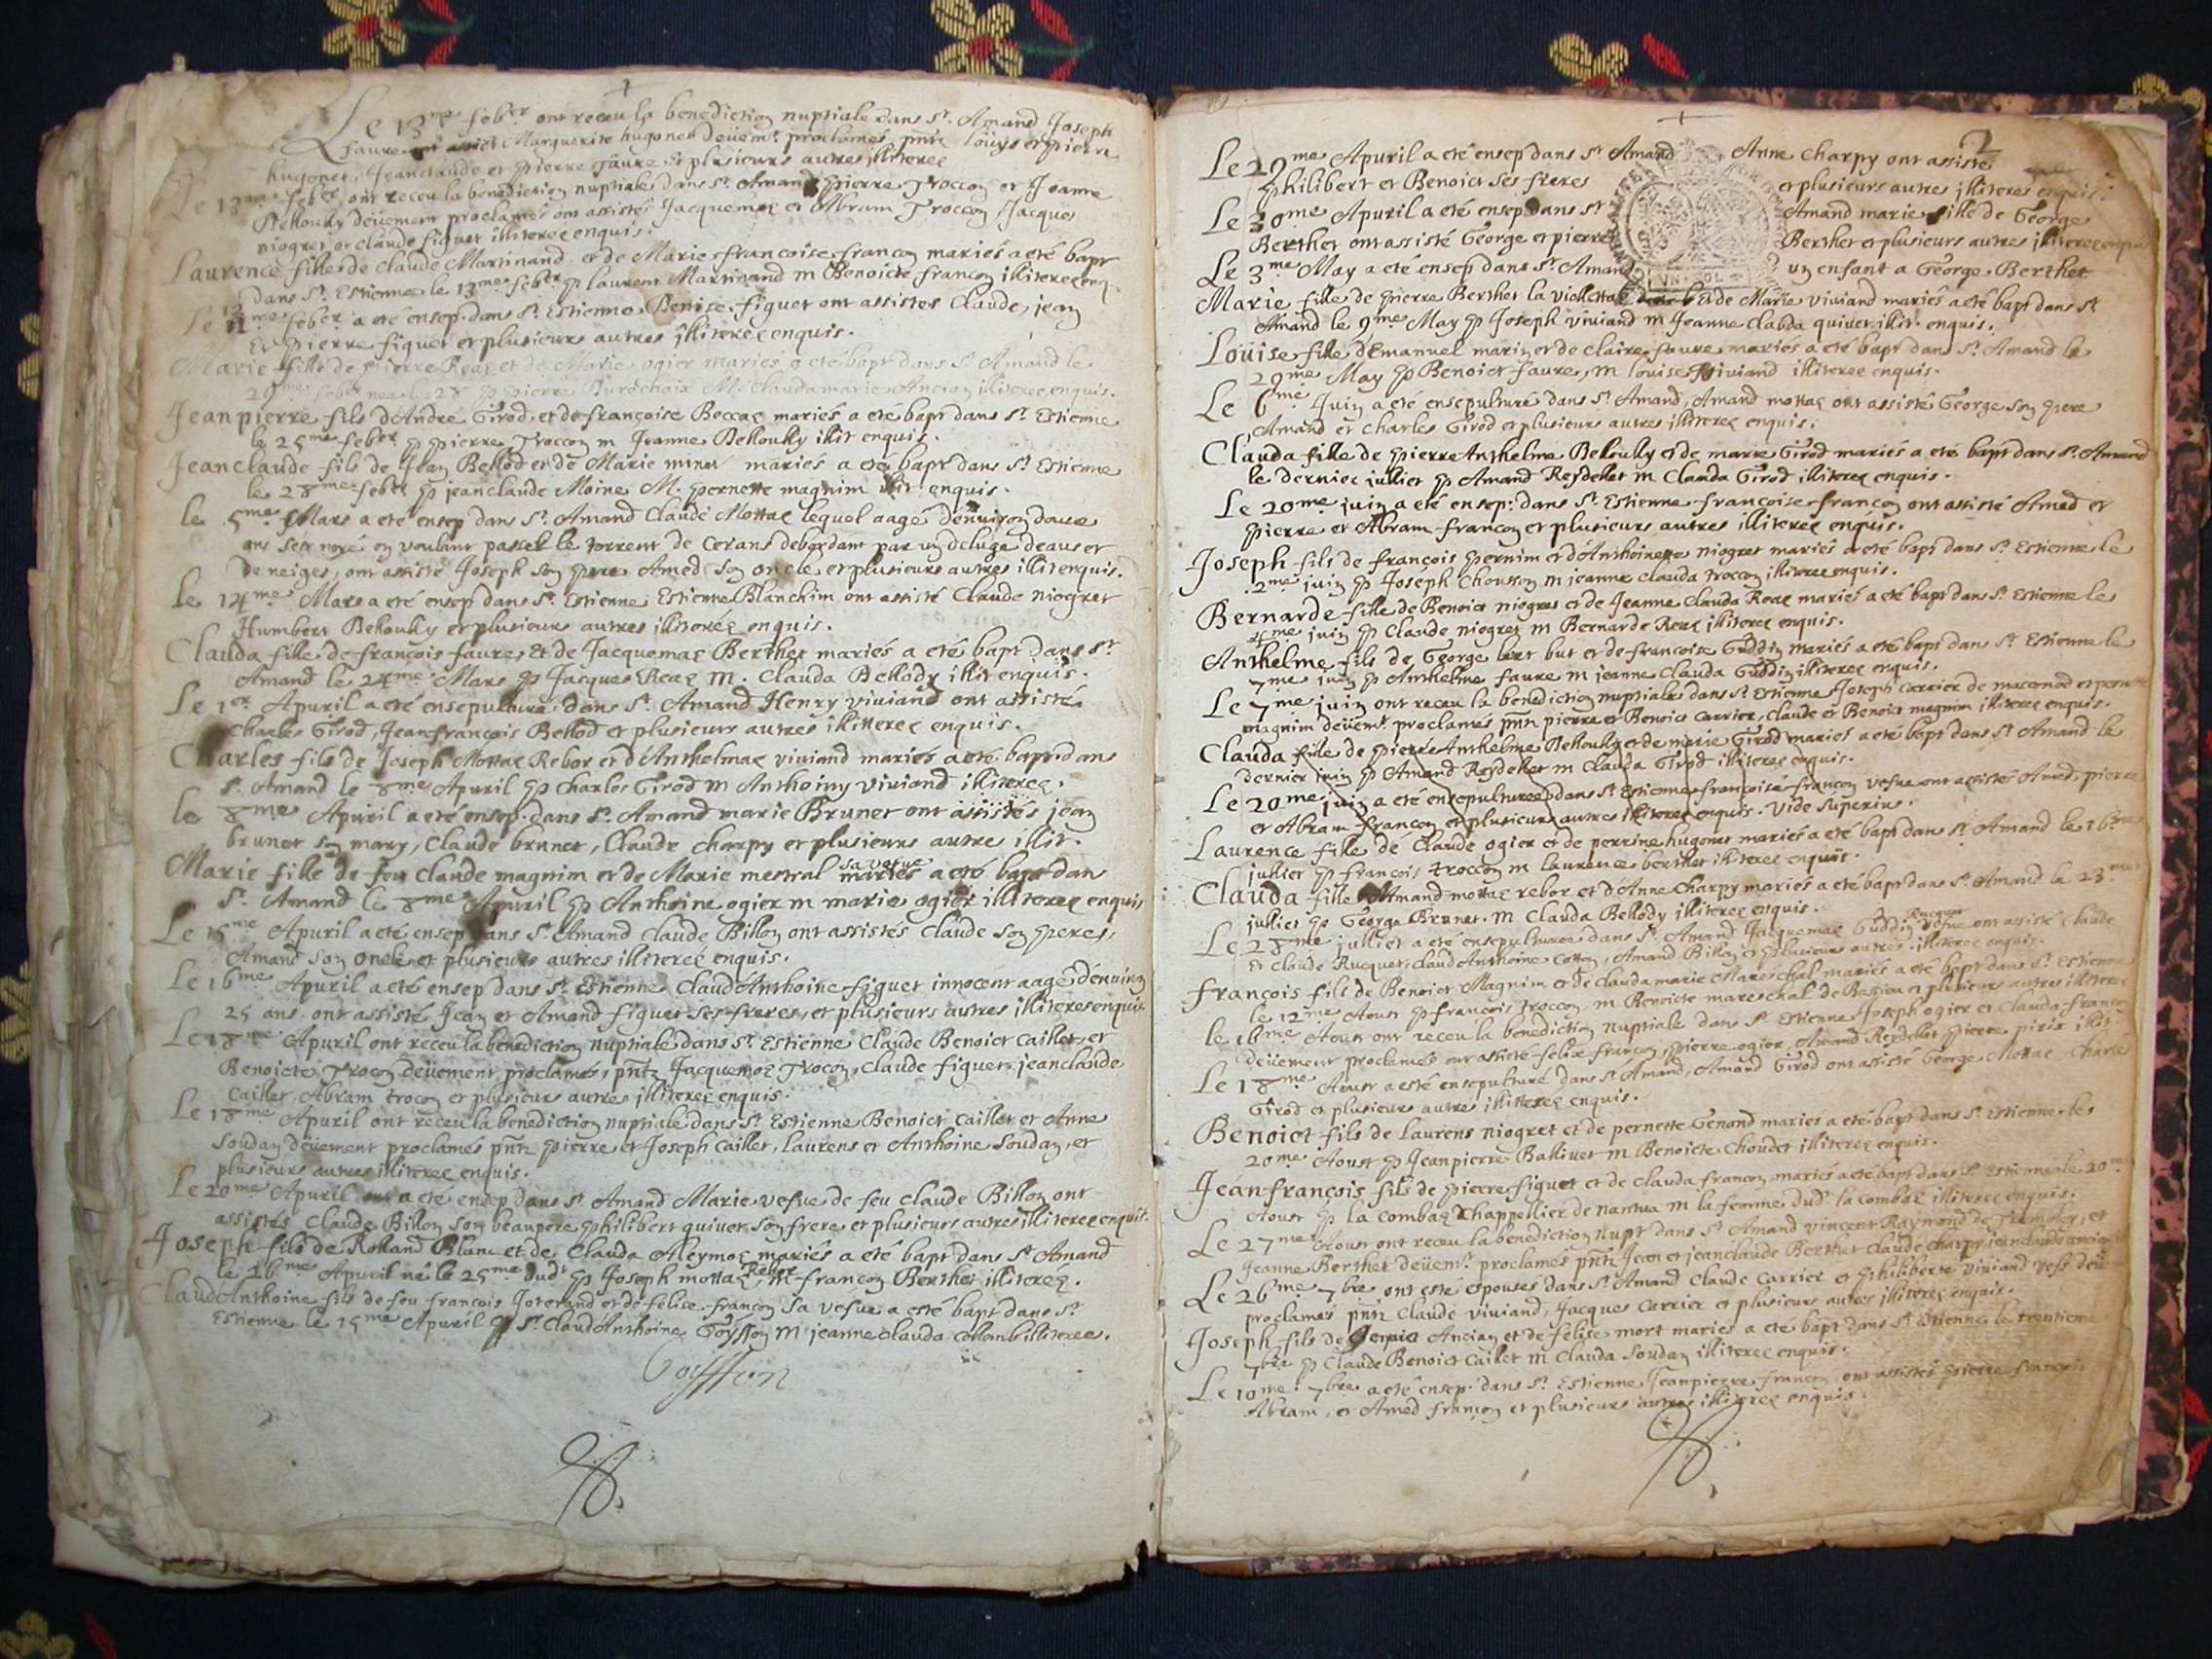 Le 13me feber ont receu la benediction nuptiale dans st. Amand Joseph
faure et Marguerite hugonet deüemt. proclamés, pntz Loüys et pierre
hugonet, Jeanclaude et pierre faure et plusieurs autres illiterez
Le 13me feber ont receu la benediction nuptiale dans st. Amand pierre Troccon et Jeanne
Bellouky deüement proclamés ont assistés Jacquemoz et Abram Troccon Jacques
niogret et claude figuet illiterez enquis.
Laurence fille de claude Martinand et de Marie francoise francon mariés a eté bapt
dans st. Estienne le 13me feber p laurent Martinand m Benoicte francon illiterez enq.
Le me feber a eté ensep. dans st. Estienne Denise figuet ont assistes Claude, jean
Et pierre figuet et plusieurs autres illiterez enquis.
Marie fille de pierre Reaz et de Marie ogier mariés a eté bapt dans st Amand le
me feber nee le 28 p pierre M. Claudamarie Ancian illiterez enquis.
Jeanpierre fils d'André Girod et de françoise Beccaz mariés a eté bapt dans st. Estienne
le 25me feber p pierre Troccon m Jeanne Bellouky illit enquis.
Jeanclaude fils de Jean Bellod et de Marie minet mariés a eté bapt dans st. Estienne
le 28me feber p jeanclaude Moine M. pernette magnim illit. enquis.
le 5me Mars a eté ensep dans st. Amand Claude Mottaz lequel aagé dénuiron douze
ans sest noyé en voulant passer le torrent de Cerans debordant par un deluge deaus et
de neiges, ont assisté Joseph son pere Amed son oncle et plusieurs autres illit enquis.
le 14me Mars a eté ensep dans st. Estienne Estienne Blanchim ont assisté Claude niogret
Humbert Bellouky et plusieurs autres illiteréz enquis.
Clauda fille de françois faure, Et de Jacquemaz Berthet mariés a eté bapt dans st
Amand le 24me Mars p Jacques Reaz M. Clauda Bellody illit enquis.
Le 1er Apuril a eté ensepulturé dans st. Amand Henry viuiand ont assistés
Charles Girod, Jeanfrançois Bellod et plusieurs autres illitterez enquis.
Charles fils de Joseph Mottaz Rebor et d'Anthelmaz viuiand mariés a eté bapt dans
st. Amand le 8me Apuril p Charles Girod m Anthoiny viuiand illiterez.
le 8me Apuril a eté ensep. dans st. Amand marie Brunet ont assistés jean
brunet son mary, Claude brunet, Claude charpy et plusieurs autre illit.
sa vefue
Marie fille de feu Claude magnim et de Marie mestral mariés a eté bapt dans
st. Amand le 8me Apuril p Anthoine ogier m marie ogier illiterez enquis
Le 15me Apuril a eté ensep dans st. Amand Claude Billon ont assistés Claude son pere,
Amand son oncle et plusieurs autres illiterez enquis.
Le 16me Apuril a eté ensep dans st. Estienne Claud'Anthoine figuet innocent aagé dénuiron
25 ans, ont assisté Jean et Amand figuet ses freres, et plusieurs autres illiteres enquis
Le 18me Apuril ont receu la benediction nuptiale dans st. Estienne Claude Benoict Caillet, et
Benoicte Trocon deüement proclamés, pntz Jacquemoz Trocon, Claude figuet, jeanclaude
Caillet, Abram trocon et plusieurs autres illiterez enquis.
Le 18me Apuril ont receu la benediction nuptiale dans st. Estienne Benoict Caillet et Anne
Soudan deüement proclamés pntz pierre et Joseph Caillet, Laurens et Anthoine Soudan, et
plusieurs autres illiterez enquis.
Le 20me Apuril a eté ensep dans st. Amand Marie vefue de feu Claude Billon ont
assistés Claude Billon son beaupere philibert quiuet son frere et plusieurs autres illiterez enquis.
Joseph fils de Rolland Blanc et de Clauda Aleymoz mariés a eté bapt dans st Amand
Rebor
le 26me Apuril né le 25me dudt p Joseph mottaz, m francon Berthet illiteréz.
Claud'Anthoine fils de feu francois Joterand et de felise francon sa vefue a esté bapt dans st
Estienne le 15me Apuril p st. Claud'Anthoine Goyffon m jeanne clauda Colomb illiterée.
Goyffon
2
Le 29me Apuril a eté ensep dans st Amand Anne Charpy ont assistés
philibert et Benoict ses freres et plusieurs autres illiteres enquis.
Le 30me Apuril a eté ensep dans st Amand marie fille de George
Berthet ont assisté George et pierre Berthet et plusieurs autres illiterez enquis
Le 3me May a eté ensep dans st Amand un enfant a George Berthet
Marie fille de pierre Berthet la viollette et de Marie viuiand mariés a eté bapt dans st
Amand le 9me May p Joseph viuiand m Jeanne Clauda quiuet illit. enquis.
Loüise fille d'Emanuel marin et de Claire faure mariés a eté bapt dans st. Amand le
29me May p Benoict faure, m louise viuiand illiterez enquis.
Le 6me Juin a eté ensepulturé dans st Amand, Amand mottaz ont assisté George son pere
Amand et Charles Girod et plusieurs autres illiterez enquis.
Clauda fille de pierre Anthelme Bellouky et de marie Girod mariés a eté bapt dans st. Amand
le dernier julliet p Amand Reydellet m Clauda Girod illiterez enquis.
Le 20me juin a eté ensep. dans st Estienne francoise francon ont assisté Amed et
pierre et Abram francon et plusieurs autres illiterez enquis.
Joseph fils de françois pernim et d'Anthoinette niogret mariés a eté bapt dans st. Estienne le
2me juin p Joseph Chousson m jeanne clauda trocon illiterez enquis.
Bernarde fille de Benoict niogret et de Jeanne Clauda Reaz mariés a eté bapt dans st. Estienne le
4me juin p Claude niogret m Bernarde Reaz illiterez enquis.
Anthelme fils de George bert but et de francoise Guddin mariés a eté bapt dans st Estienne le
7me juin p Anthelme faure m jeanne Clauda Guddin illiterez enquis.
Le 7me juin ont receu la benediction nuptiale dans st Estienne Joseph Carrier de maconod et pernette
magnim deüemt proclamés pntz pierre et Benoict Carrier, Claude et Benoict magnim illiterez enquis.
Clauda fille de pierre Anthelme Bellouky et de marie Girod mariés a eté bapt dans st Amand le
dernier juin p Amand Reydellet m Clauda Girod illiterez enquis.
Le 20me juin a eté ensepulturée dans st. Estienne francoise francon vefue ont assistés Amed, pierre
et Abram francon et plusieurs autres illiterez enquis. Vide superius.
Laurence fille de Claude ogier et de perrine hugonet mariés a eté bapt dans st. Amand le 16me
julliet p francois troccon m laurence berthet illiterez enquis.
Clauda fille d'Amand mottaz rebor et d'Anne Charpy mariés a eté bapt dans st. Amand le 23me
julliet p George Brunet. M Clauda Bellody illiterez enquis.
Rucquet
Le 28me julliet a eté ensepulturée dans st. Amand Jacquemaz Guddin vefue ont assisté Claude
Et Claude Rucquet, Claud'Anthoine Cotton, Amand Billon et plusieurs autres illiterez enquis.
françois fils de Benoict Magnim et de Clauda marie Mareschal mariés a eté bapt dans st. Estienne
le 12me Aoust p francois troccon m Benoicte mareschal de et plusieurs autres illiterez
le 16me Aoust ont receu la benediction nuptiale dans st Estienne Joseph ogier et Clauda francon
deüement proclamés ont assisté felix francon, pierre ogier, Amand Reydellet pierre illit
Le 18me Aoust a esté ensepulturé dans st Amand, Amand Girod ont assisté George Mottaz Charles
Girod et plusieurs autres illitterez enquis.
Benoict fils de Laurens niogret et de pernette Genand mariés a eté bapt dans st. Estienne le
20me Aoust p Jeanpierre Balliuet m Benoicte Choudet illiterez enquis.
Jeanfrançois fils de pierre figuet et de Clauda francon mariés a eté bapt dans st. Estienne le 20me
Aoust p la Combaz Chappellier de nantua m la femme dudt la Combaz illiterez enquis.
Le 27me Aoust ont receu la benediction nupt dans st Amand vincent Raymond de et
Jeanne Berthet deüemt. proclamés pntz Jean et jeanclaude Berthet Claude Charpy
Le 26me 7bre ont esté epousés dans st. Amand Claude Carrier et philiberte viuiand vefs deüe
proclamés pntz Claude viuiand, Jacques Carrier et plusieurs autres illiterez enquis.
Joseph fils de Ancian et de felise mort mariés a eté bapt dans st Estienne le trentieme
7bre p Claude Benoict Caillet m Clauda Soudan illiterez enquis.
Le 10me 7bre a eté ensep. dans st. Estienne Jeanpierre francon, ont assistés pierre francon
Abram, et Amed francon et plusieurs autres illiterez enquis.